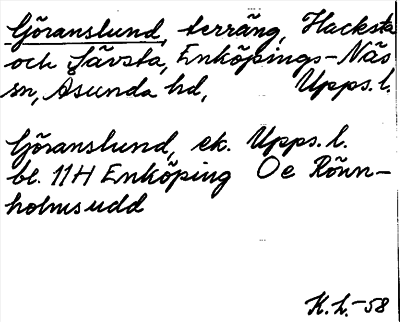 Göranslund, terräng, Hacksta
och Sävsta, Enköpings-Näs
sn, Åsunda hd, Upps.l.
Göranslund, ek. Upps.l.
bl. 11H Enköping Oe Rönn-
holmsudd
K.L.-58